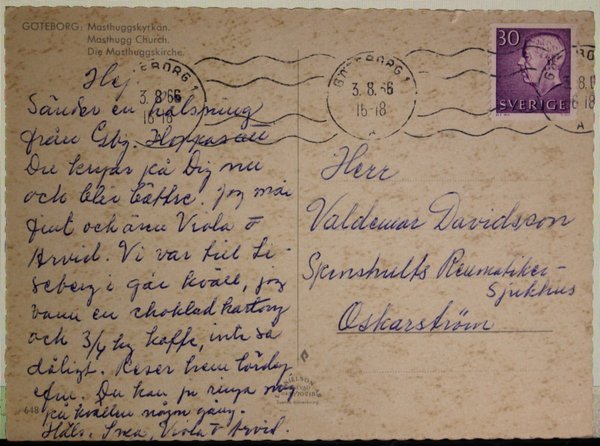 GÖTEBORG: Masthuggskyrkan.
Masthugg Church.
Die Masthuggskirche.
GÖTEBORG 1
3.8.66
16-18
GÖTEBORG 1
3.8.66
16-18
A
30
SVERIGE
Hej.
Sänder en hälsning
från Gbg. Hoppas att
Du kryar på Dig nu
och blir bättre. Jag mår
fint och även Viola o
Arvid. Vi var till Li-
seberg i går kväll, jag
vann en chokladkartong
och 3/4 kg kaffe, inte så
dåligt. Reser hem lördag
efm. Du kan ju ringa mig
på kvällen någon gång.
Häls. Viola o Arvid.
Herr
Valdemar Davidsson
Spenshults Reumatiker-
Sjukhus
Oskarström
648